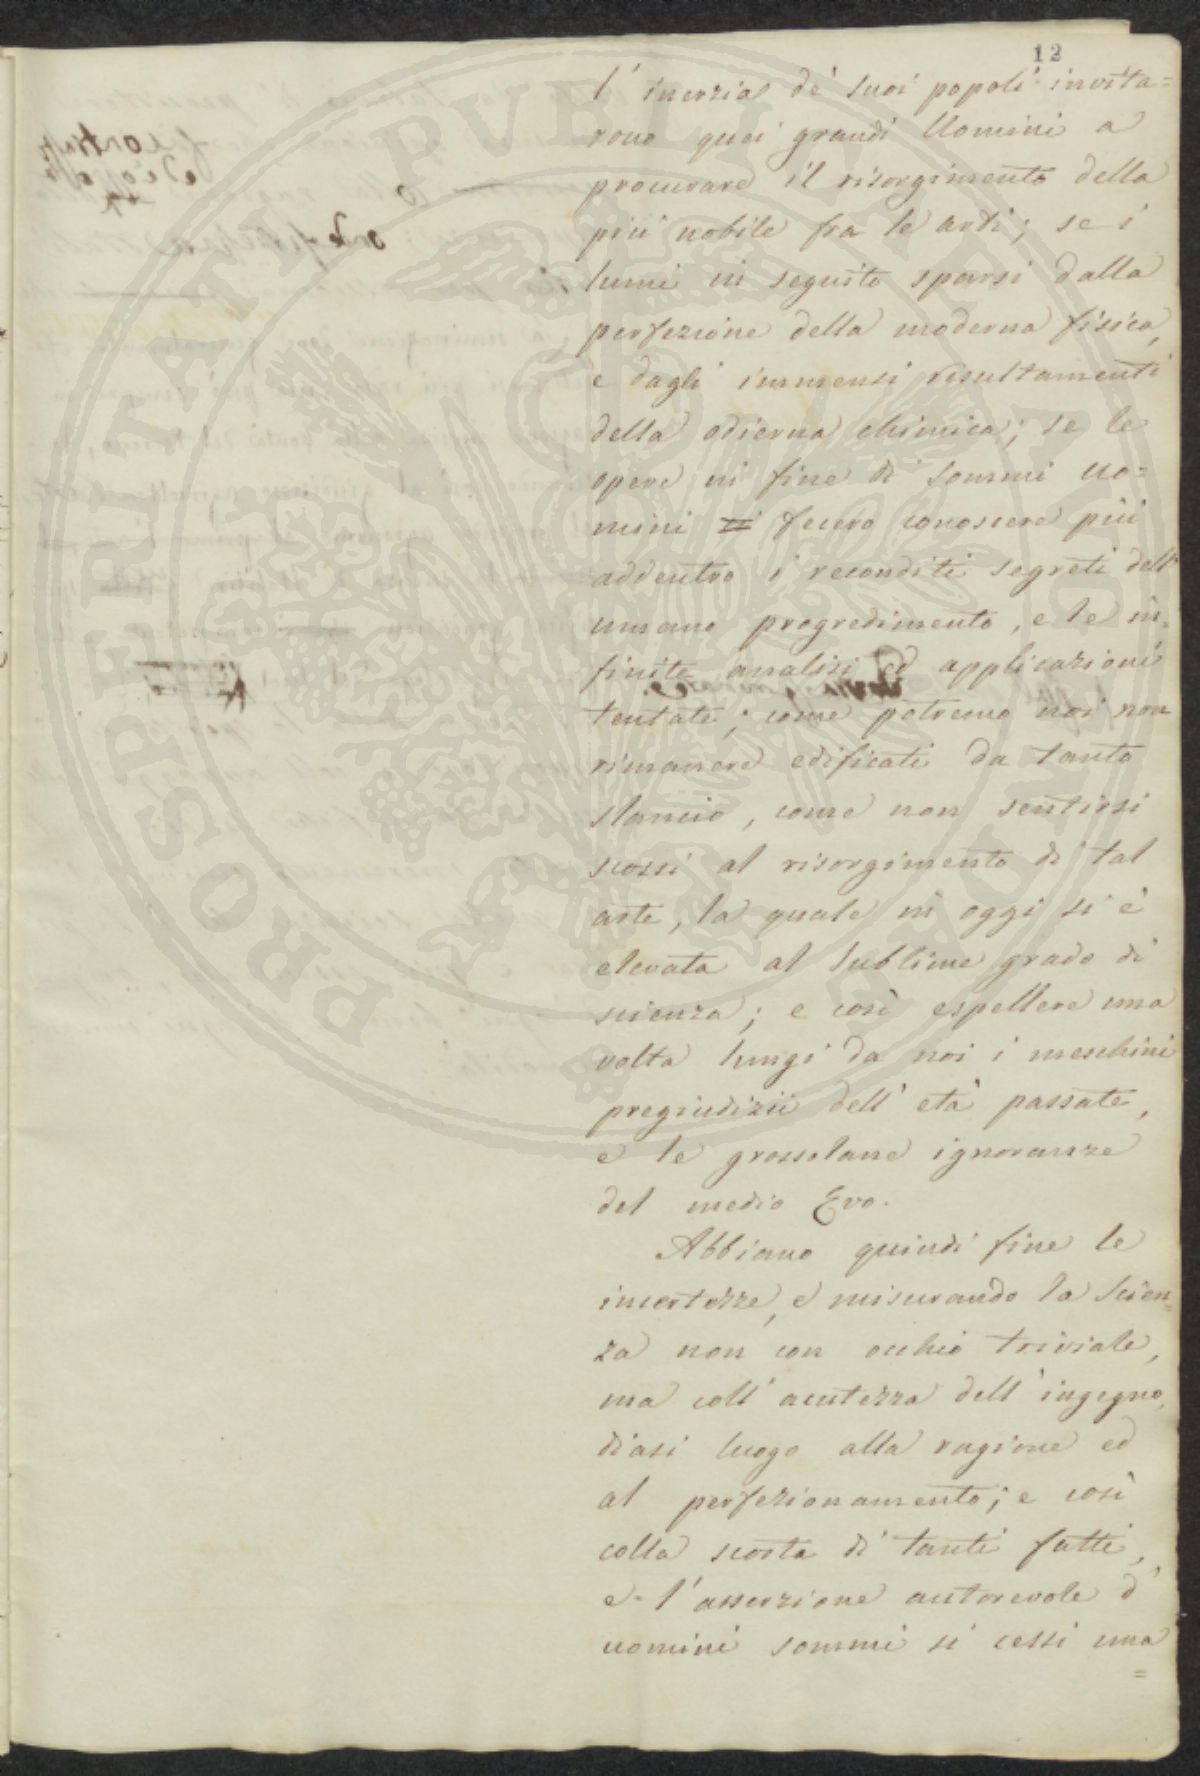 12
l' inerzia de' suoi popoli invita=
rono quei grandi Uomini a
procurare il risorgimento della
più nobile fra le arti; se i
lumi in seguito sparsi dalla
perfezione della moderna fisica,
e dagli immensi resultamenti
della odierna chimica; se le
opere in fine di sommi uo=
mini fecero conoscere più
addentro i reconditi segreti dell'
umano progredimento, e le in=
finite analisi ed applicazioni
tentate; come potremo noi non
rimanere edificati da tanto
slancio, come non sentirsi
scossi al risorgimento di tal
arte, la quale in oggi si è
elevata al sublime grado di
scienza; e così espellere una
volta lungi da noi i meschini
pregiudizii dell' età passate,
e le grossolane ignoranze
del medio Evo.
Abbiano quindi fine le
incertezze, e misurando la Scien=
za non con occhio triviale,
ma coll' acutezza dell' ingegno,
diasi luogo alla ragione ed
al perfezionamento; e così
colla scorta di tanti fatti,
e l' asserzione autorevole d'
uomini sommi si cessi una
=
PROSPERITATI PUBLICAE